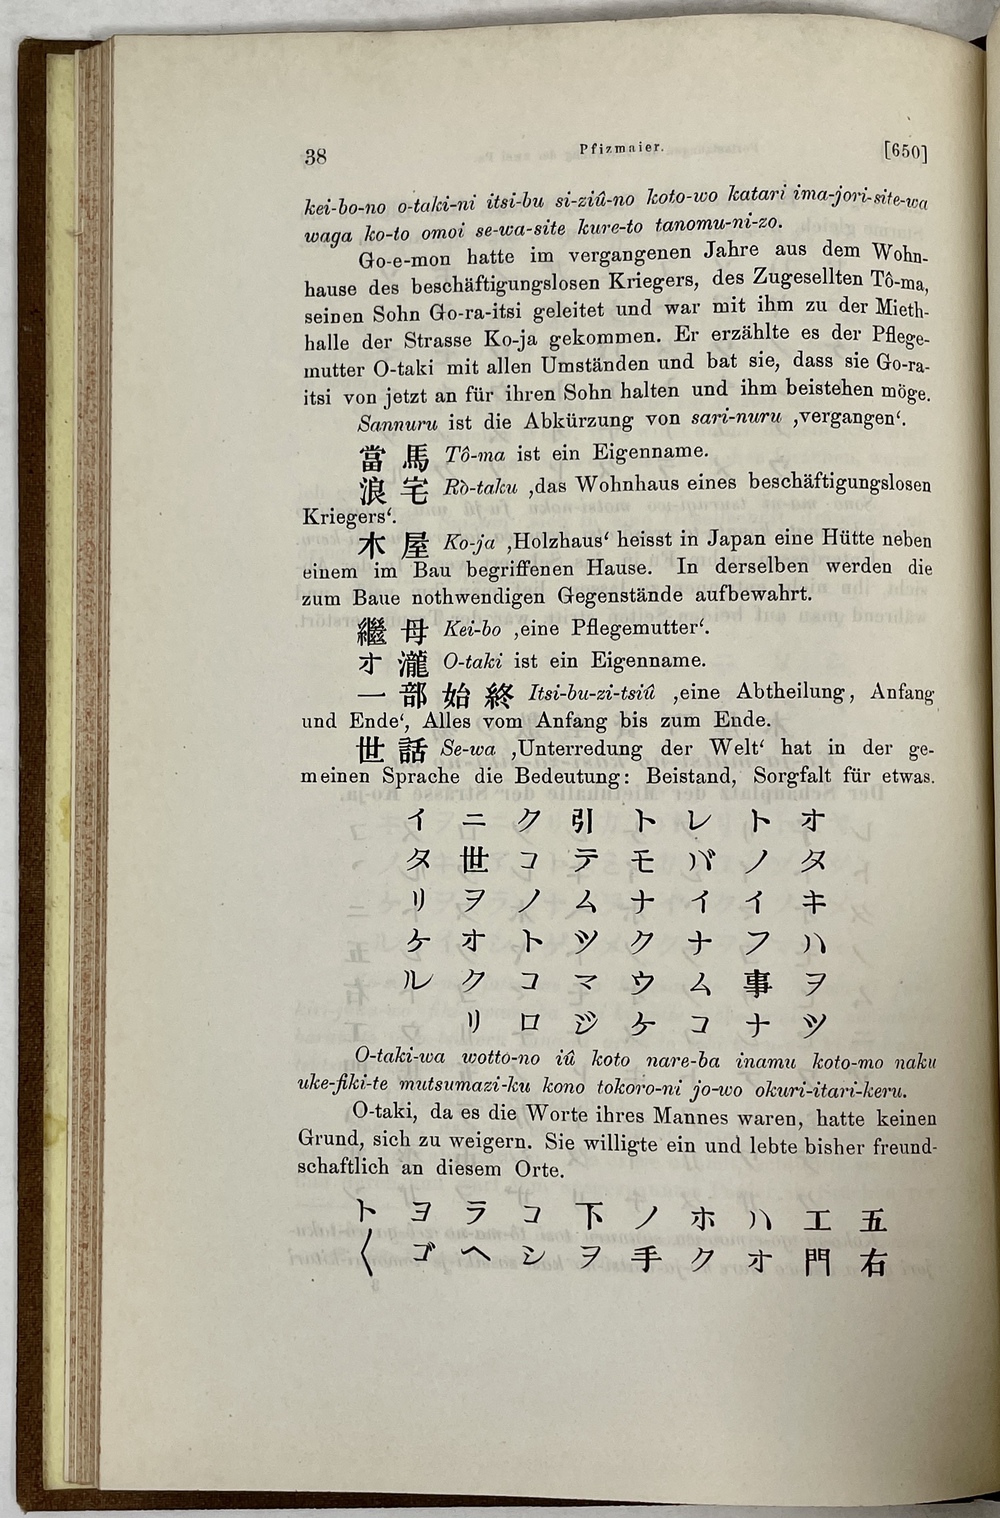 38
Pfizmaier.
[650]
kei-bo-no o-taki-ni itsi-bu si-ziû-no koto-wo katari ima-jori-site-wa
waga ko-to omoi se-wa-site kure-to tanomu-ni-zo.
Go-e-mon hatte im vergangenen Jahre aus dem Wohn-
hause des beschäftigungslosen Kriegers, des Zugesellten Tô-ma,
seinen Sohn Go-ra-itsi geleitet und war mit ihm zu der Mieth-
halle der Strasse Ko-ja gekommen. Er erzählte es der Pflege-
mutter O-taki mit allen Umständen und bat sie, dass sie Go-ra-
itsi von jetzt an für ihren Sohn halten und ihm beistehen möge.
Sannuru ist die Abkürzung von sari-nuru ‚vergangen‘.
當馬 Tô-ma ist ein Eigenname.
浪宅 Rô-taku ‚das Wohnhaus eines beschäftigungslosen
Kriegers‘.
木屋 Ko-ja ‚Holzhaus‘ heisst in Japan eine Hütte neben
einem im Bau begriffenen Hause. In derselben werden die
zum Baue nothwendigen Gegenstände aufbewahrt.
繼母 Kei-bo ‚eine Pflegemutter‘.
オ瀧 O-taki ist ein Eigenname.
一部始終 Itsi-bu-zi-tsiû ‚eine Abtheilung, Anfang
und Ende‘, Alles vom Anfang bis zum Ende.
世話 Se-wa ‚Unterredung der Welt‘ hat in der ge-
meinen Sprache die Bedeutung: Beistand, Sorgfalt für etwas.
オタキハヲツ
トノイフ事ナ
レバイナムコ
トモナクウケ
引テムツマジ
クコノトコロ
ニ世ヲオクリ
イタリケル
O-taki-wa wotto-no iû koto nare-ba inamu koto-mo naku
uke-fiki-te mutsumazi-ku kono tokoro-ni jo-wo okuri-itari-keru.
O-taki, da es die Worte ihres Mannes waren, hatte keinen
Grund, sich zu weigern. Sie willigte ein und lebte bisher freund-
schaftlich an diesem Orte.
五右
エ門
ハオ
ホク
ノ手
下ヲ
コシ
ラヘ
ヨゴ
ト〱